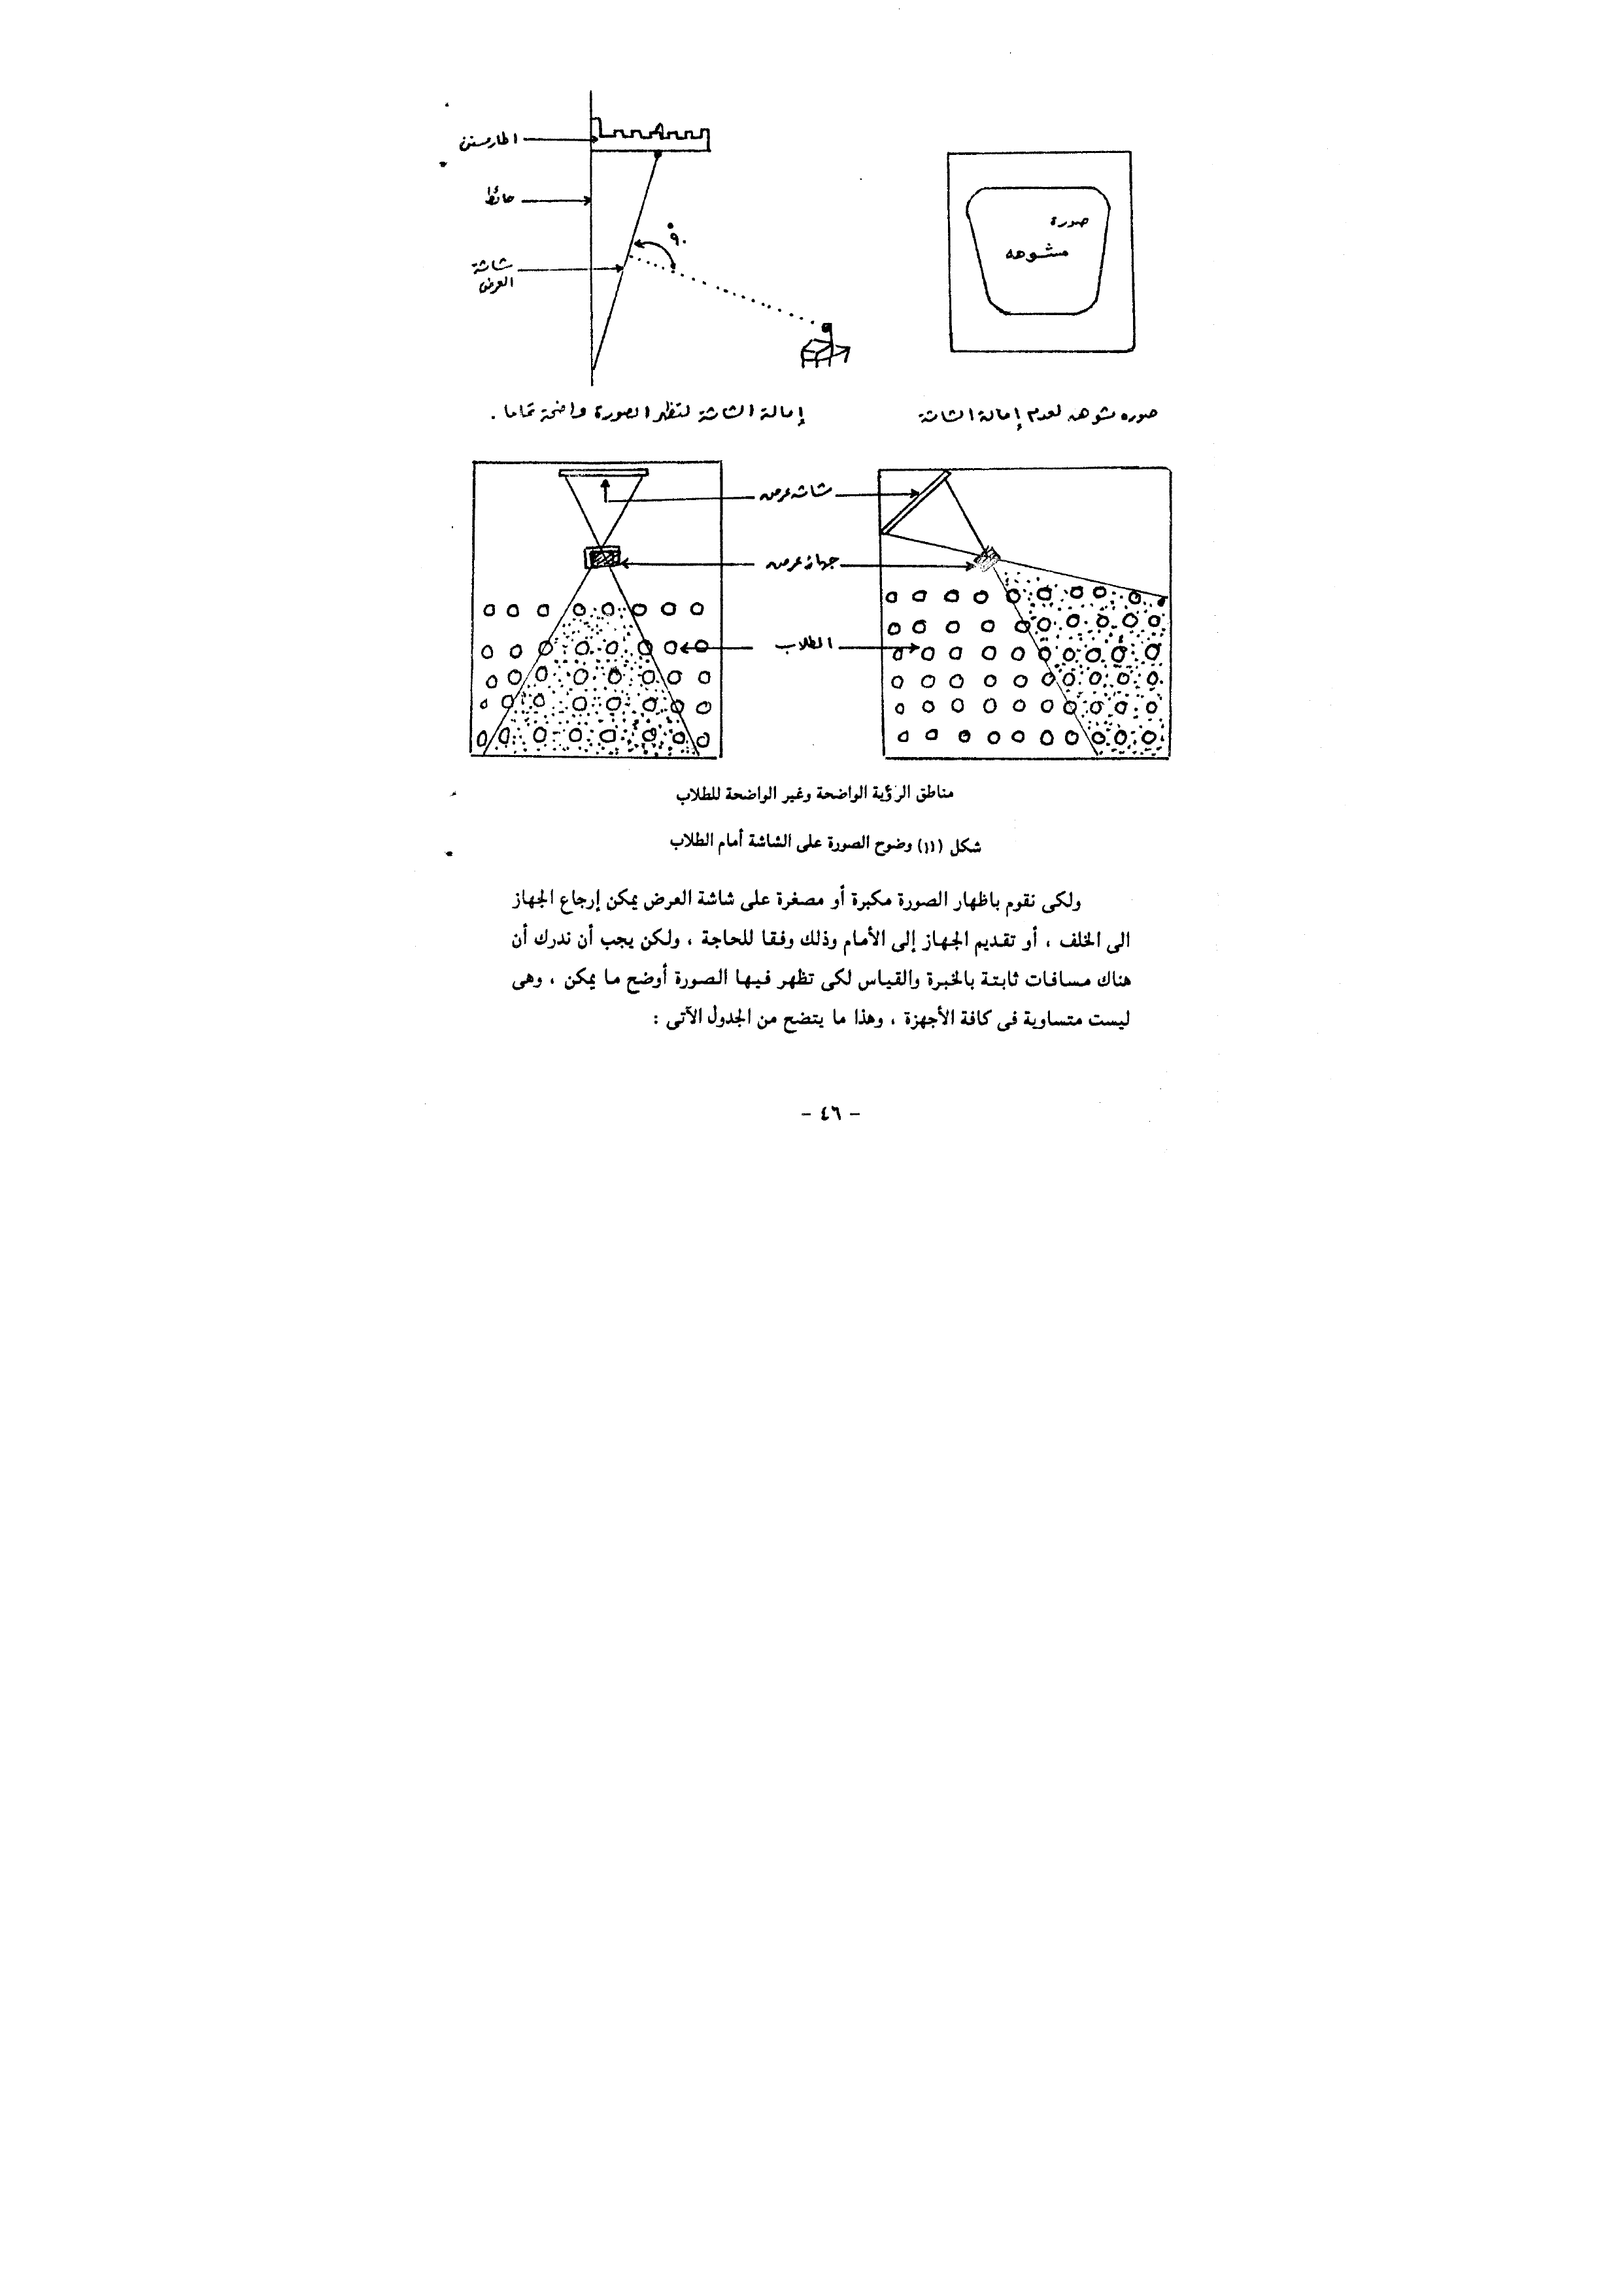 اطار مسنن
حائط
شاشة
العرض
٩٠°
صورة
مشوهه
صوره مشوهه لعدم إمالة الشاشة
إمالة الشاشة لتظهر الصورة واضحة تماما .
شاشه عرض
جهاز عرض
الطلاب
مناطق الرؤية الواضحة وغير الواضحة للطلاب
شكل (١١) وضوح الصورة على الشاشة أمام الطلاب
ولكى نقوم باظهار الصورة مكبرة أو مصغرة على شاشة العرض يمكن إرجاع الجهاز
الى الخلف ، أو تقديم الجهاز إلى الأمام وذلك وفقا للحاجة ، ولكن يجب أن ندرك أن
هناك مسافات ثابتة بالخبرة والقياس لكى تظهر فيها الصورة أوضح ما يمكن ، وهى
ليست متساوية فى كافة الأجهزة ، وهذا ما يتضح من الجدول الآتى :
- ٤٦ -